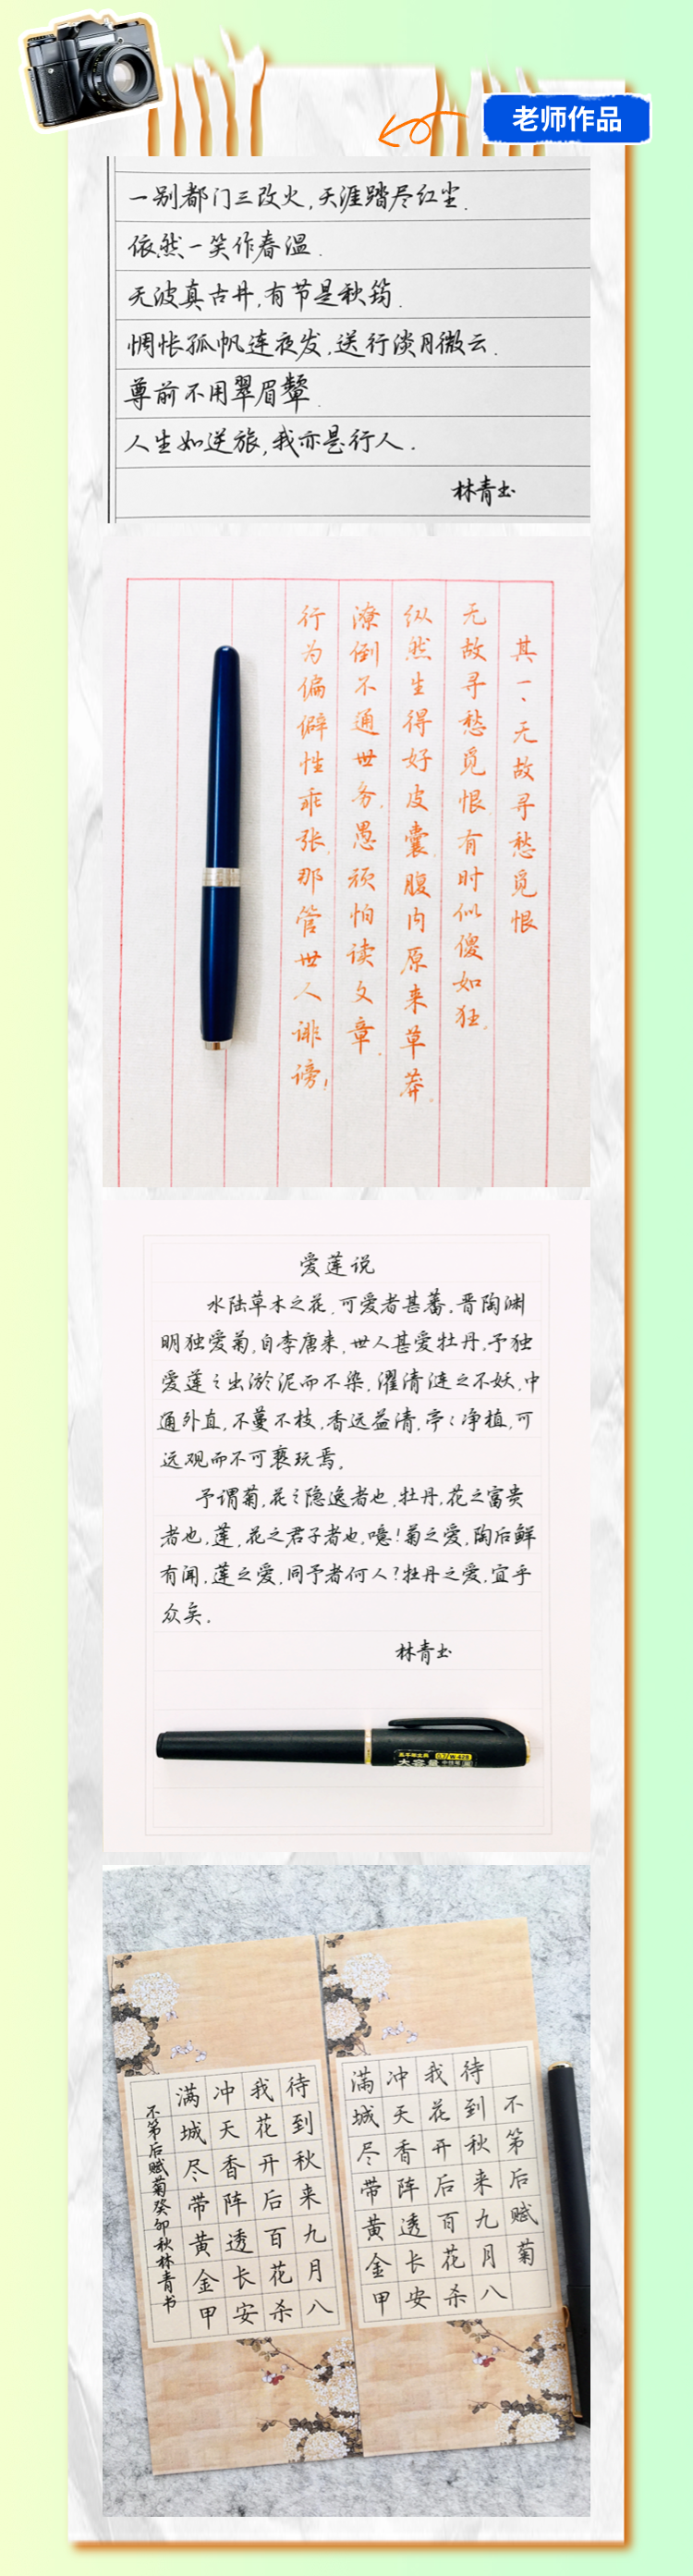 老师作品
一别都门三改火,天涯踏尽红尘.
依然一笑作春温.
无波真古井,有节是秋筠.
惆怅孤帆连夜发,送行淡月微云.
尊前不用翠眉颦.
人生如逆旅,我亦是行人.
林青书
其一、无故寻愁觅恨
无故寻愁觅恨,有时似傻如狂.
纵然生得好皮囊,腹内原来草莽.
潦倒不通世务,愚顽怕读文章.
行为偏僻性乖张,那管世人诽谤!
爱莲说
水陆草木之花,可爱者甚蕃.晋陶渊
明独爱菊,自李唐来,世人甚爱牡丹,予独
爱莲之出淤泥而不染,濯清涟之不妖,中
通外直,不蔓不枝,香远益清,亭亭净植,可
远观而不可亵玩焉.
予谓菊,花之隐逸者也,牡丹,花之富贵
者也,莲,花之君子者也,噫!菊之爱,陶后鲜
有闻.莲之爱,同予者何人?牡丹之爱,宜乎
众矣.
林青书
大容量
待到秋来九月八
我花开后百花杀
冲天香阵透长安
满城尽带黄金甲
不第后赋菊癸卯秋林青书
不第后赋菊
待到秋来九月八
我花开后百花杀
冲天香阵透长安
满城尽带黄金甲